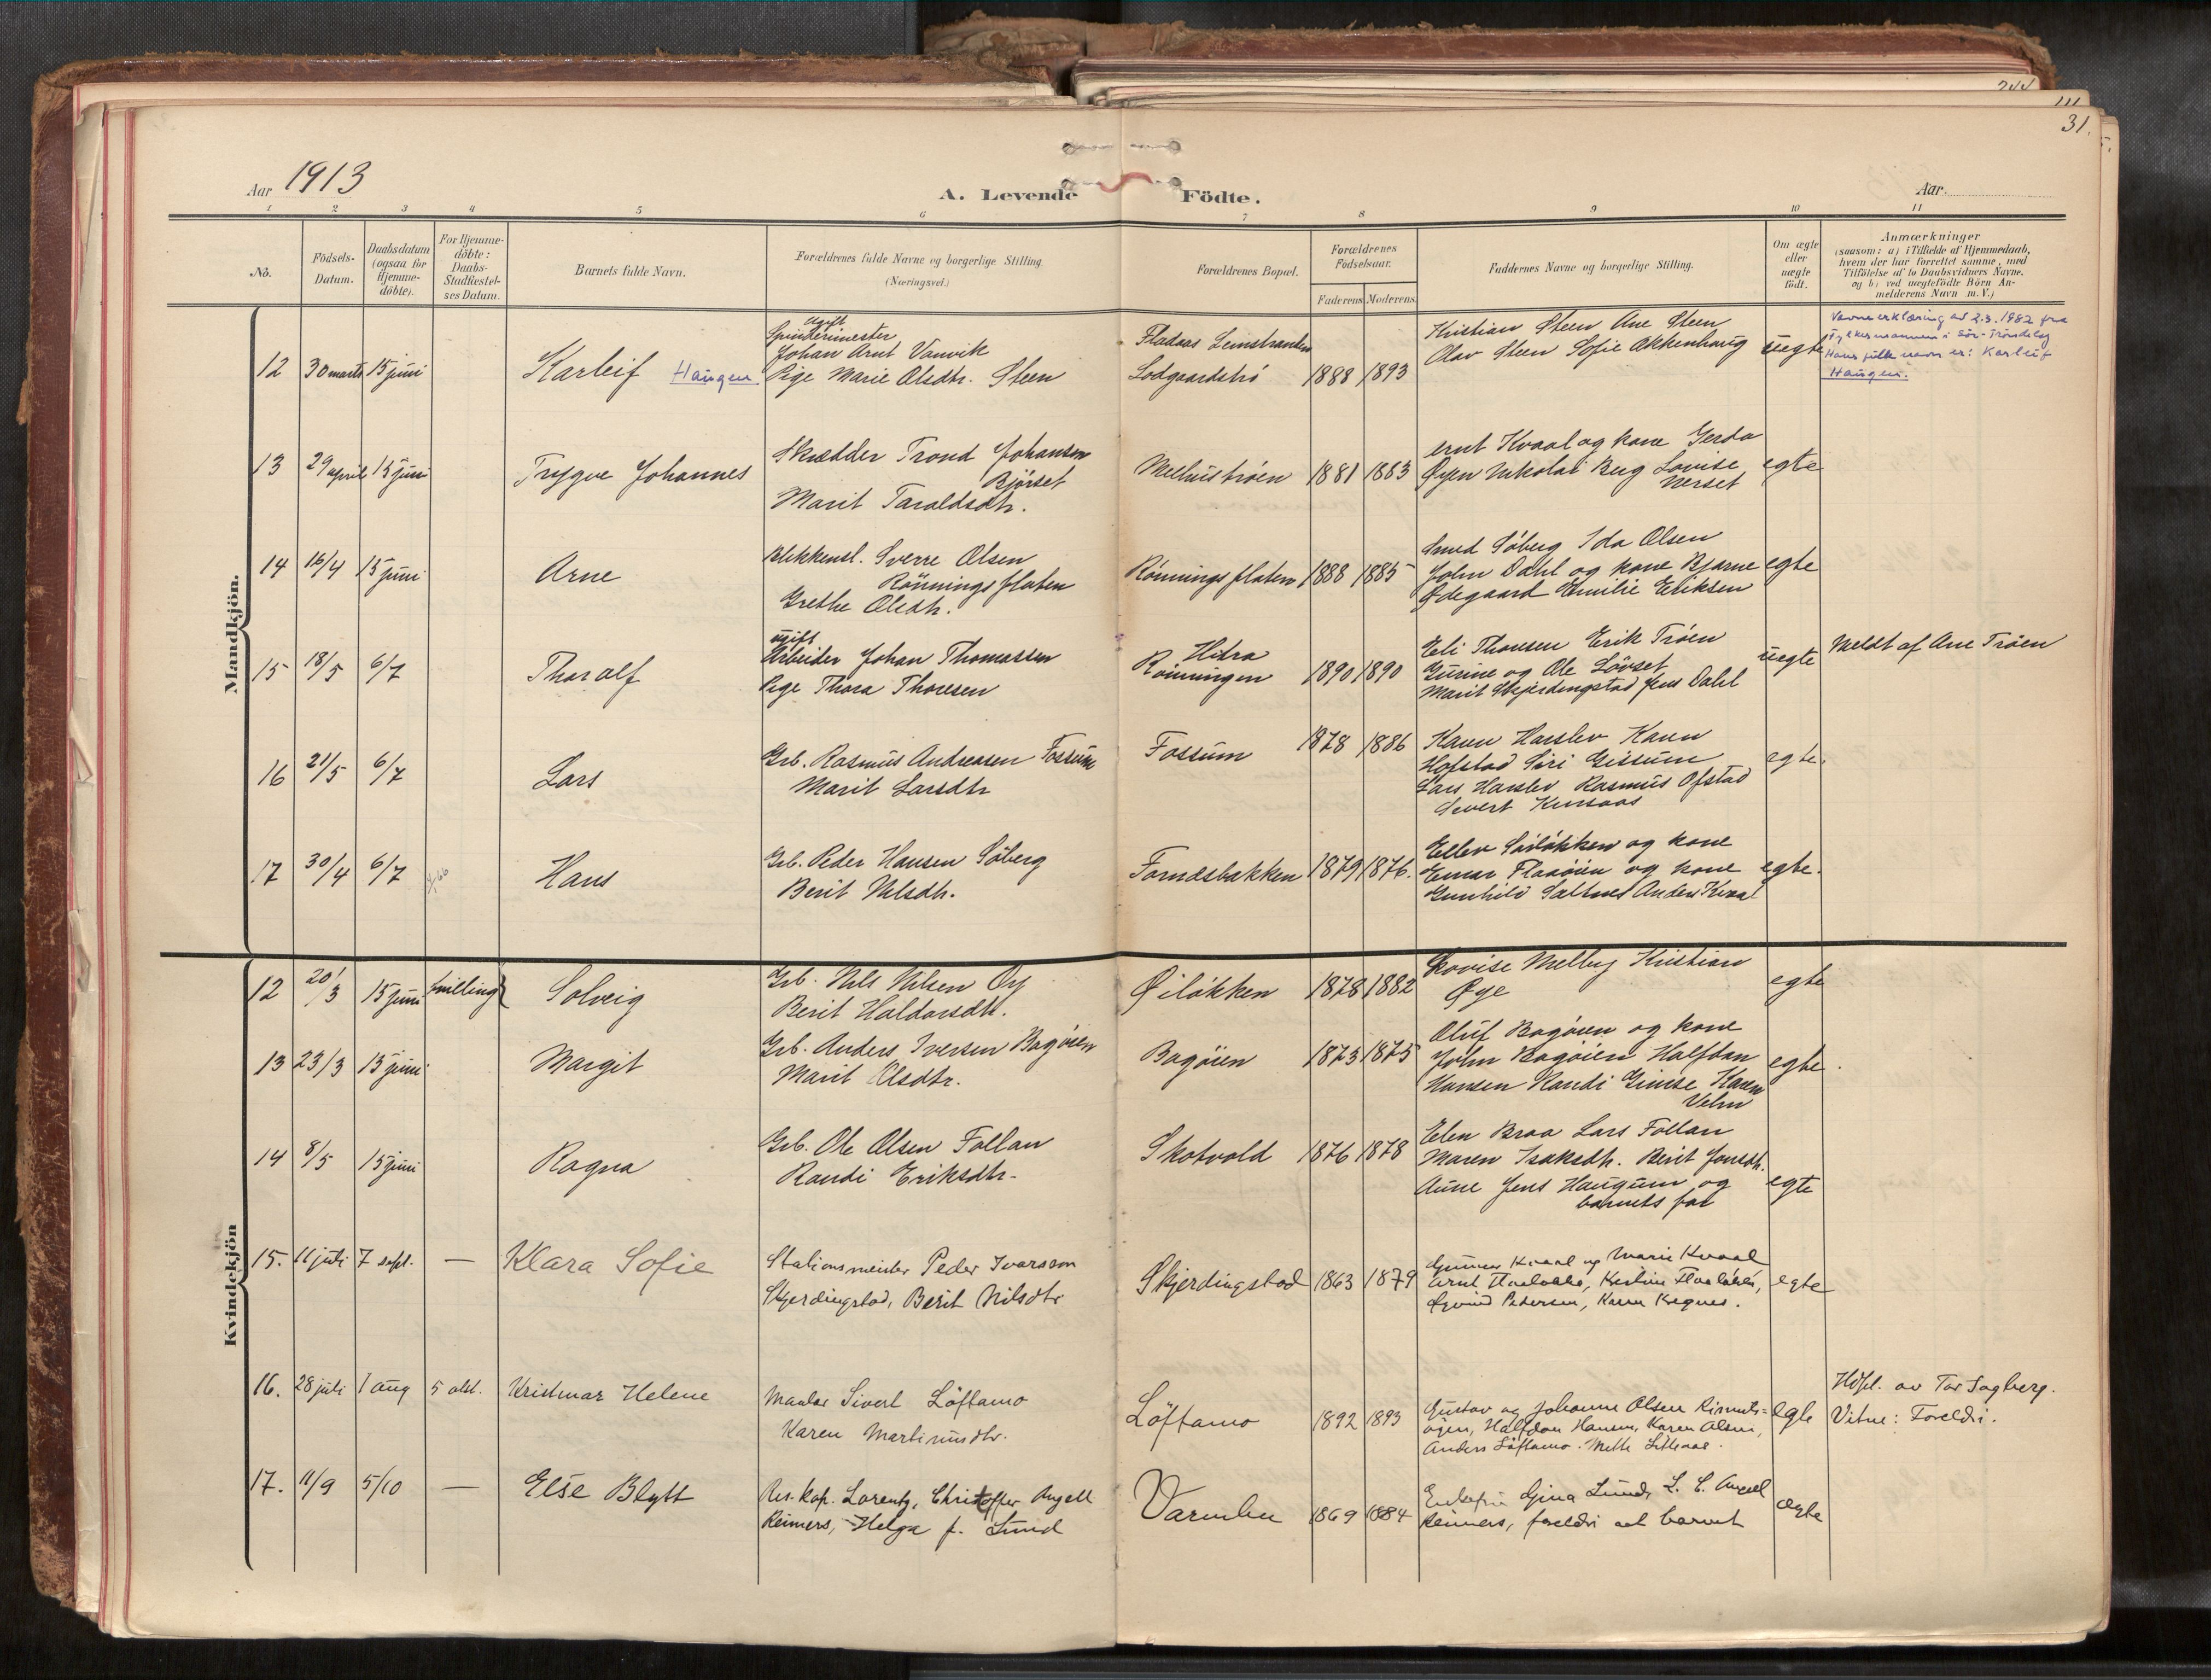 244
31.
Aar 1913
A. Levende Födte.
Aar
1 2 3 4 5 6 7 8 9 10 11
No.
Födsels-
Datum.
Daabsdatum
(ogsaa för
Hjemme-
döbte).
For Hjemme-
döbte:
Daabs-
Stadfæstel-
ses Datum.
Barnets fulde Navn.
Forældrenes fulde Navne og borgerlige Stilling
(Næringsvei.)
Forældrenes Bopæl.
Forældrenes
Födselsaar.
Faderens Moderens
Faddernes Navne og borgerlige Stilling.
Om ægte
eller
uægte
födt.
Anmærkninger
(saasom: a) i Tilfælde af Hjemmedaab,
hvem der har forrettet samme, med
Tilföielse af to Daabsvidners Navne.
og b) ved uægtefödte Börn An-
melderens Navn m. V.)
Mandkjön.
12 30 marts 15 juni Karleif Haugen
ugift
Spinderimester
Johan Arnt Vanvik
Pige Marie Olsdtr. Steen
Fladaas Leinstranden
Lodgaardströ 1888 1893
Kristian Steen Ane Steen
Olav Steen Sofie Akkenhaug uegte
Navneerklæring av 2.3.1982 fra
fylkesmannen i Sör-Tröndelag
Hans fulle navn er: Karleif
Haugen.
13 29 april 15 juni Trygve Johannes
Skrædder Trond Johansen
Björset
Marit Taraldsdtr.
Melhuströen 1881 1883
Arnt Kvaal og kone Gerda
Øyen Nikolai Bug Lovise
Nerset egte
14 16/4 15 juni Arne
Blikkensl. Sverre Olsen
Rönningsplaten
Grethe Olsdtr.
Rönningsplaten 1888 1885
Smed Söberg Ida Olsen
John Dahl og kone Bjarne
Ødegaard Emilie Eriksen egte
15 18/5 6/7 Thoralf
ugift
Arbeider Johan Thomassen
Pige Thora Thoresen
Hitra
Rönningen 1890 1890
Eli Thonsen Erik Tröen
Gurine og Ole Lövset
Marit Skjerdingstad Jens Dahl uegte
Meldt af Ane Tröen
16 21/5 6/7 Lars
Grb. Rasmus Andreasen Fossum
Marit Larsdtr
Fossum 1878 1886
Karen Harslev Karen
Hofstad Siri Gissum
Lars Harslev Rasmus Ofstad
Sivert egte.
17 30/4 6/7 Hans
Grb. Peder Hansen Söberg
Berit Nilsdtr.
Fornesbakken 1879 1876.
Ellev Sörlökken og kone
Einar Flaaöien og kone
Gunhild Saltnes Anders Kvaal egte.
Kvindekjön
12 20/3 15 juni tvilling Solveig
Grb. Nils Nilsen Øy
Berit Haldorsdtr.
Øilökken 1878 1882
Lovise Melby Kristian
Øye egte
13 23/3 15 juni Margit
Grb. Anders Iversen Bagöien
Marit Olsdtr.
Bagöien 1873 1875
Oluf Bagöien og kone
John Bagöien Halfdan
Hansen Randi Gimse Karen
Velm egte.
14 8/5 15 juni Ragna
Grb. Ole Olsen Follan
Randi Eriksdtr.
Skotvold 1876 1878
Elen Braa Lars Follan
Maren Isaksdtr. Berit Jonsdtr.
Aune Jens Haugum og
barnets far egte
15. 11 juli 7 sept. — Klara Sofie
Stationsmester Peder Ivarsson
Skjerdingstad, Berit Nilsdtr
Skjerdingstad 1863 1879
Gunnar Kvaal og Marie Kvaal
Arnt Flaalökke, Kirstine Flaalökke,
Øyvind Pedersen, Karen Kregnes. egte
16. 28 juli 1 aug 5 okt. Kristmar Helene
Maler Sivert Löftamo
Karen Martinusdtr.
Löftamo 1892 1893
Gustav og Johanna Olsen
öien, Halfdan Hansen, Karen Olsen,
Anders Löftamo. Mette egte
Hdpl. av Tor Sagberg.
Vitne: Foreldri.
17. 11/9 5/10 — Else Blytt
Res. kap. Lorentz Christoffer Angell
Reimers, Helga f. Lund
Varmbu 1869 1884
Enkefru Gina Lund, L. C. Angell
Reimers, foreldri at barnet ægte